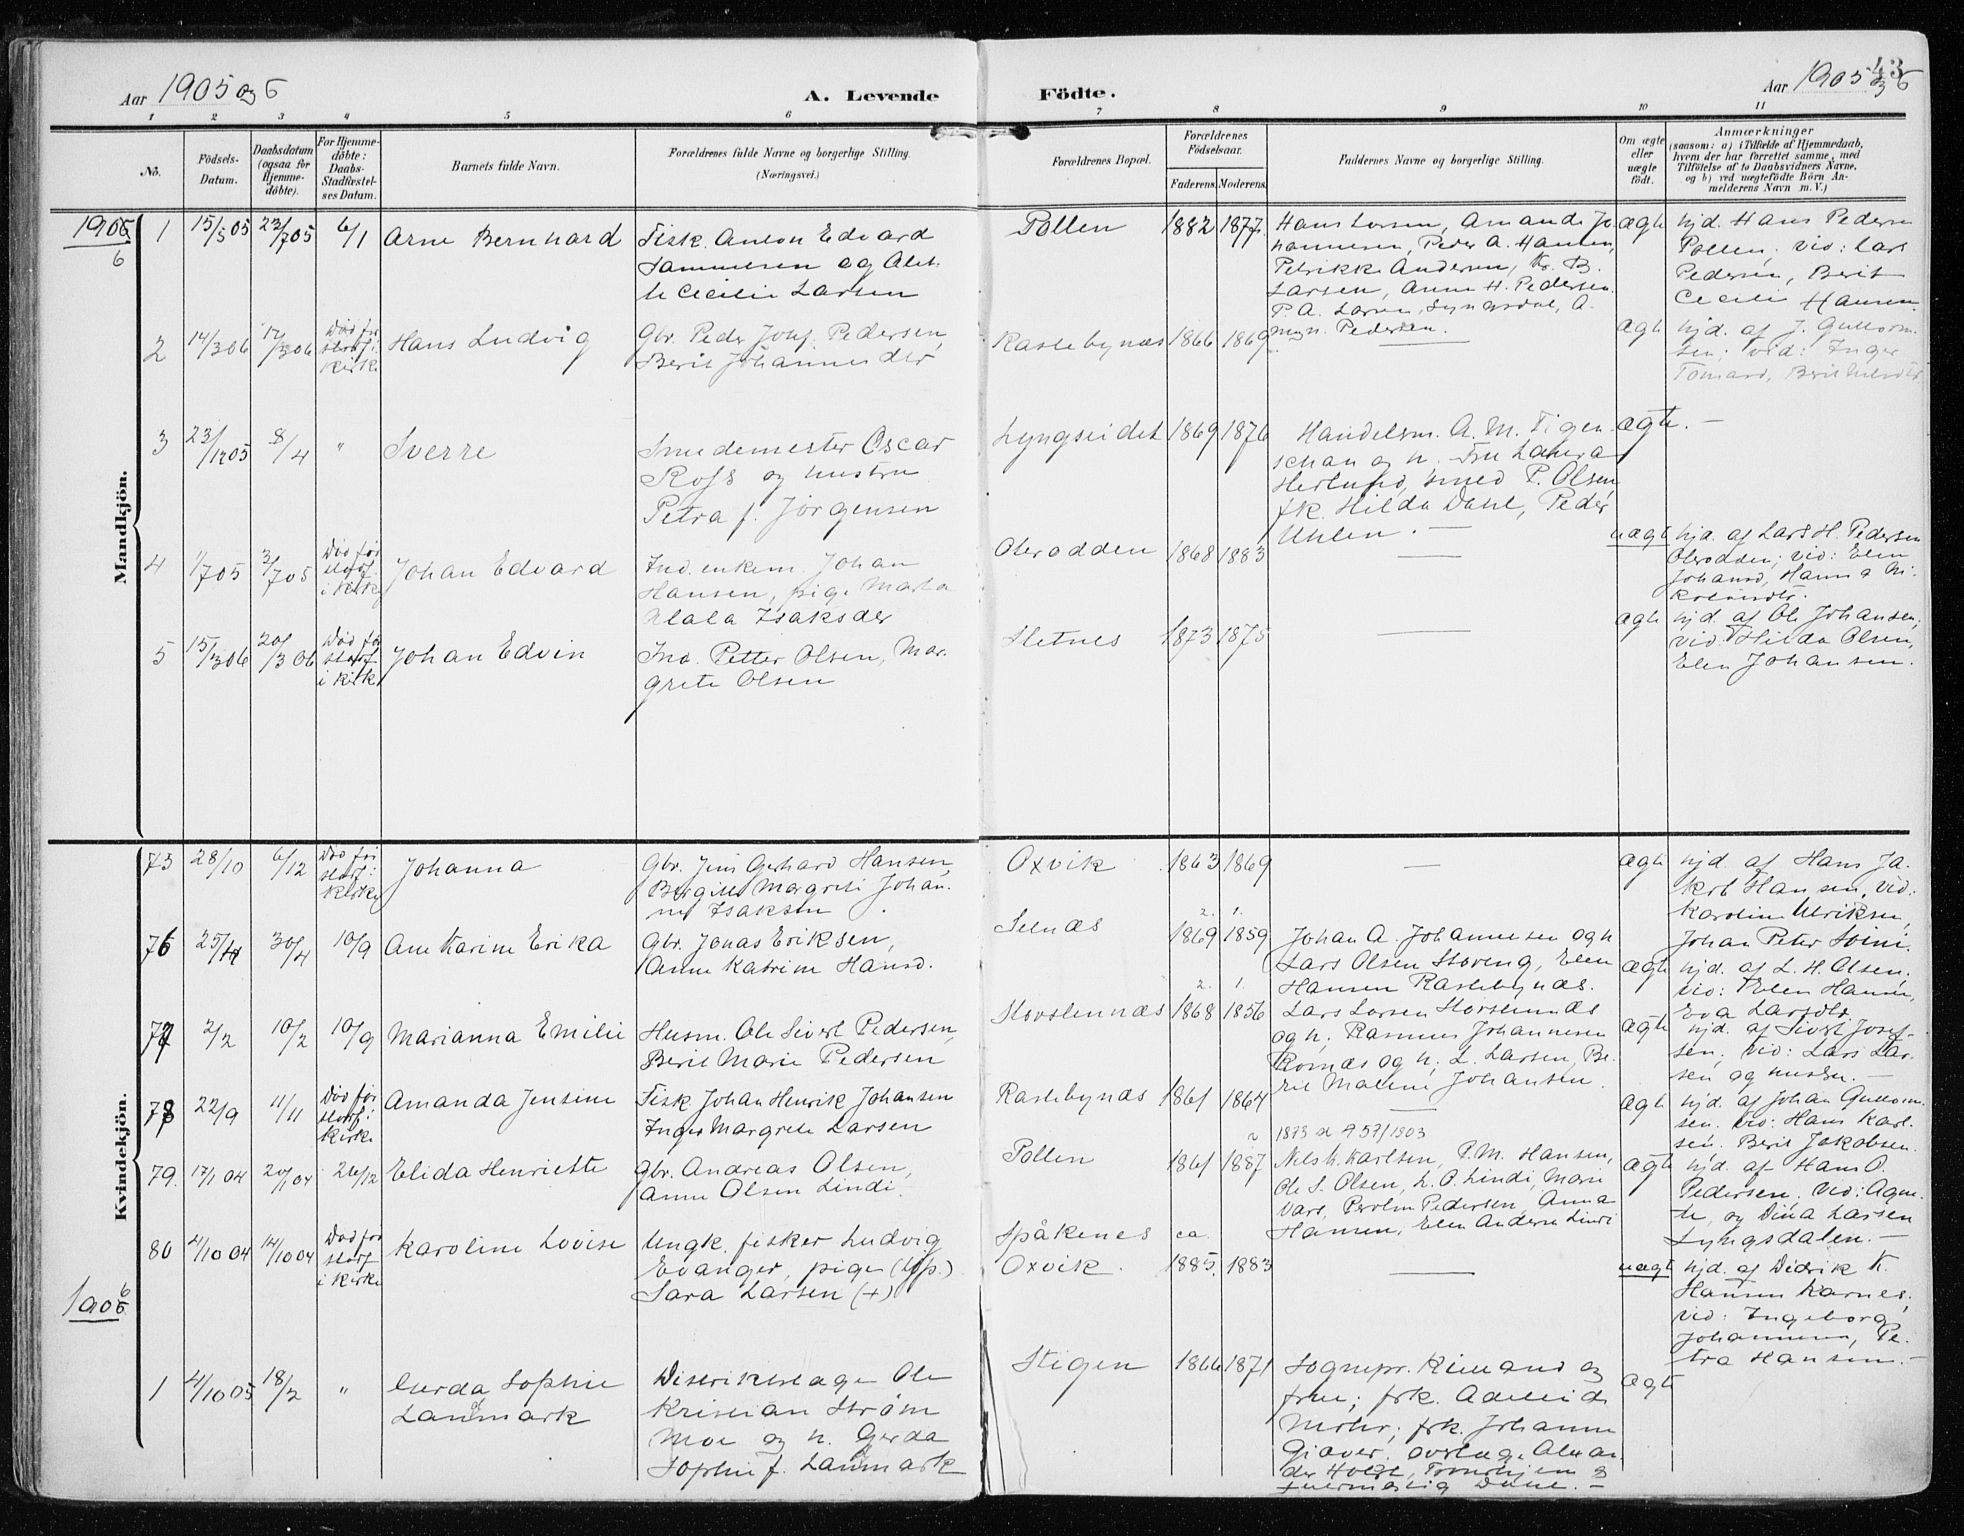 43
Aar 1905 og 6
A. Levende
Födte.
Aar 1905 og 6
1 2 3 4 5 6 7 8 9 10 11
No.
Födsels-
Datum.
Daabsdatum
(ogsaa for
Hjemme-
döbte).
For Hjemme-
döbte:
Daabs-
Stadfæstel-
ses Datum.
Barnets fulde Navn.
Forældrenes fulde Navne og borgerlige Stilling.
(Næringsvei.)
Forældrenes Bopæl.
Forældrenes
Födselsaar.
Faderens. Moderens.
Faddernes Navne og borgerlige Stilling.
Om ægte
eller
uægte
födt.
Anmærkninger
(saasom: a) i Tilfælde af Hjemmedaab,
hvem der har forrettet samme, med
Tilföielse af to Daabsvidners Navne,
og b) ved uægtefödte Börn An-
melderens Navn m. V.)
Mandkjön.
1906
6
1 15/5 05 23/7 05 6/1 Arne Bernhard
Fisk. Anton Edvard
Sammelsen og Alet-
te Cecilie Larsen
Pollen 1882 1877
Hans Larsen, Amanda Jo-
hannesen, Peder A. Hansen,
Petrikke Andersen, Kr. B.
Larsen, Anne H. Pedersen
P. A. Larsen, Lyngsdal, A.
Pedersen.
ægte
hjd. Hans Pedersen
Pollen, vid: Lars
Pedersen, Berit
Cecilie Hansen
2 14/3 06 17/3 06 Død før
stadf. i
kirke
Hans Ludvig
Gbr. Peder Josef Pedersen,
Berit Johannesdtr
Rastebynæs 1866 1869
ægte
hjd. af J. Guttorm-
sen; vid: Inger
Tomasd, Berit
3 23/12 05 8/4 " Sverre
Smedemester Oscar
Ross og hustru
Petra f. Jørgensen
Lyngseidet 1869 1876
Handelsm. A. M. Figen-
schau og h. Fru Laura
Herlund, smed P. Olsen,
frk. Hilda Dahl, Peder
Uhlen. —
ægte. —
4 1/7 05 3/7 05 Død før
stadf.
i kirke
Johan Edvard
Ind. enkem. Johan
Hansen, pige Marta
Isaksdtr
Oterodden 1868 1883
—
uægte
hjd. af Lars H. Pedersen
Oterodden; vid: Elen
Johansd, Hanna Ni-
kolaisdtr.
5 15/3 06 20/3 06 Død før
stadf
i kirke
Johan Edvin
Ind. Petter Olsen, Mar-
grete Olsen
Sletnes 1873 1875
—
ægte
hjd. af Ole Johansen;
vid: Hilda Olsen,
Elen Johansen.
Kvindekjön.
75 28/10 6/12 Død før
stadf:
kirke
Johanna
Gbr. Jens Gerhard Hansen,
Bergitte Margrete Johan-
ne Isaksen
Oxvik 1863 1869
—
ægte
hjd. af Hans Ja-
kob Hansen, vid:
Karoline Ulriksen,
Johan Peter
76 25/4 30/4 10/9 Ane Karine Erika
Gbr. Jonas Eriksen,
Anne Katrine Hansd.
2. 1.
1869 1859
Johan A. Johannesen og h
Lars Olsen Stoveng, Elen
Hansen Rastebynæs.
ægte
hjd. af L. H. Olsen.
vid: Elen Hansen,
Eva Larsdtr.
77 2/2 10/2 10/9 Marianna Emilie
Husm. Ole Sivert Pedersen,
Berit Marie Pedersen
2. 1.
Storslennæs 1868 1856
Lars Larsen Storslennæs
og h. Rasmus Johannesen
Kornæs og h. L. Larsen, Be-
rit Malene Johansen.
ægte
hjd. af Sivert Josef-
sen. vid: Lars Lar-
sen og hustru. —
78 22/9 11/11 Død før
stadf:
kirke
Amanda Jensine
Fisk Johan Henrik Johansen
Inger Margrete Larsen
Rastebynæs 1861 1864
—
ægte
hjd. af Johan Guttorm-
sen. vid: Hans Karl-
sen, Berit Jakobsen
79. 17/1 04 20/1 04 26/12 Elida Henriette
Gbr. Andreas Olsen,
Anne Olsen Lindi.
Pollen 1861 1887
1873 57/1903
Nils K. Karlsen, P. M. Hansen,
Ole S. Olsen, L. O. Lindi, Marie
Pedersen, Anna
Hansen, Elen Anderse Lindi
ægte
hjd. af Hans O.
Pedersen, vid: Agne-
te, og Dina Larsen
Lyngsdalen. —
80 4/10 04 14/10 04 Død før
stadf
i kirke
Karoline Lovise
Ungk. fisker Ludvig
Evanger, pige (lapp.)
Sara Larsen (+)
Spåkenes ca.
Oxvik. 1885. 1883
—
uægte
hjd. af Didrik K.
Hansen Karnes,
vid: Ingeborg
Johannesen, Pe-
tra Hansen. —
1906
6
1 4/10 05 18/2 " Gerda Sophie
Lanmark
Distriktslæge Ole
Kristian Strøm
Moe og h. Gerda
Sophie f. Lanmark
Stigen 1866 1871
Sognepr. Kieland og
frue; frk. Adelheid
Mohr, frk. Johanne
Giæver, overlæge Alexan-
der Holst, Trondhjem og
ægte